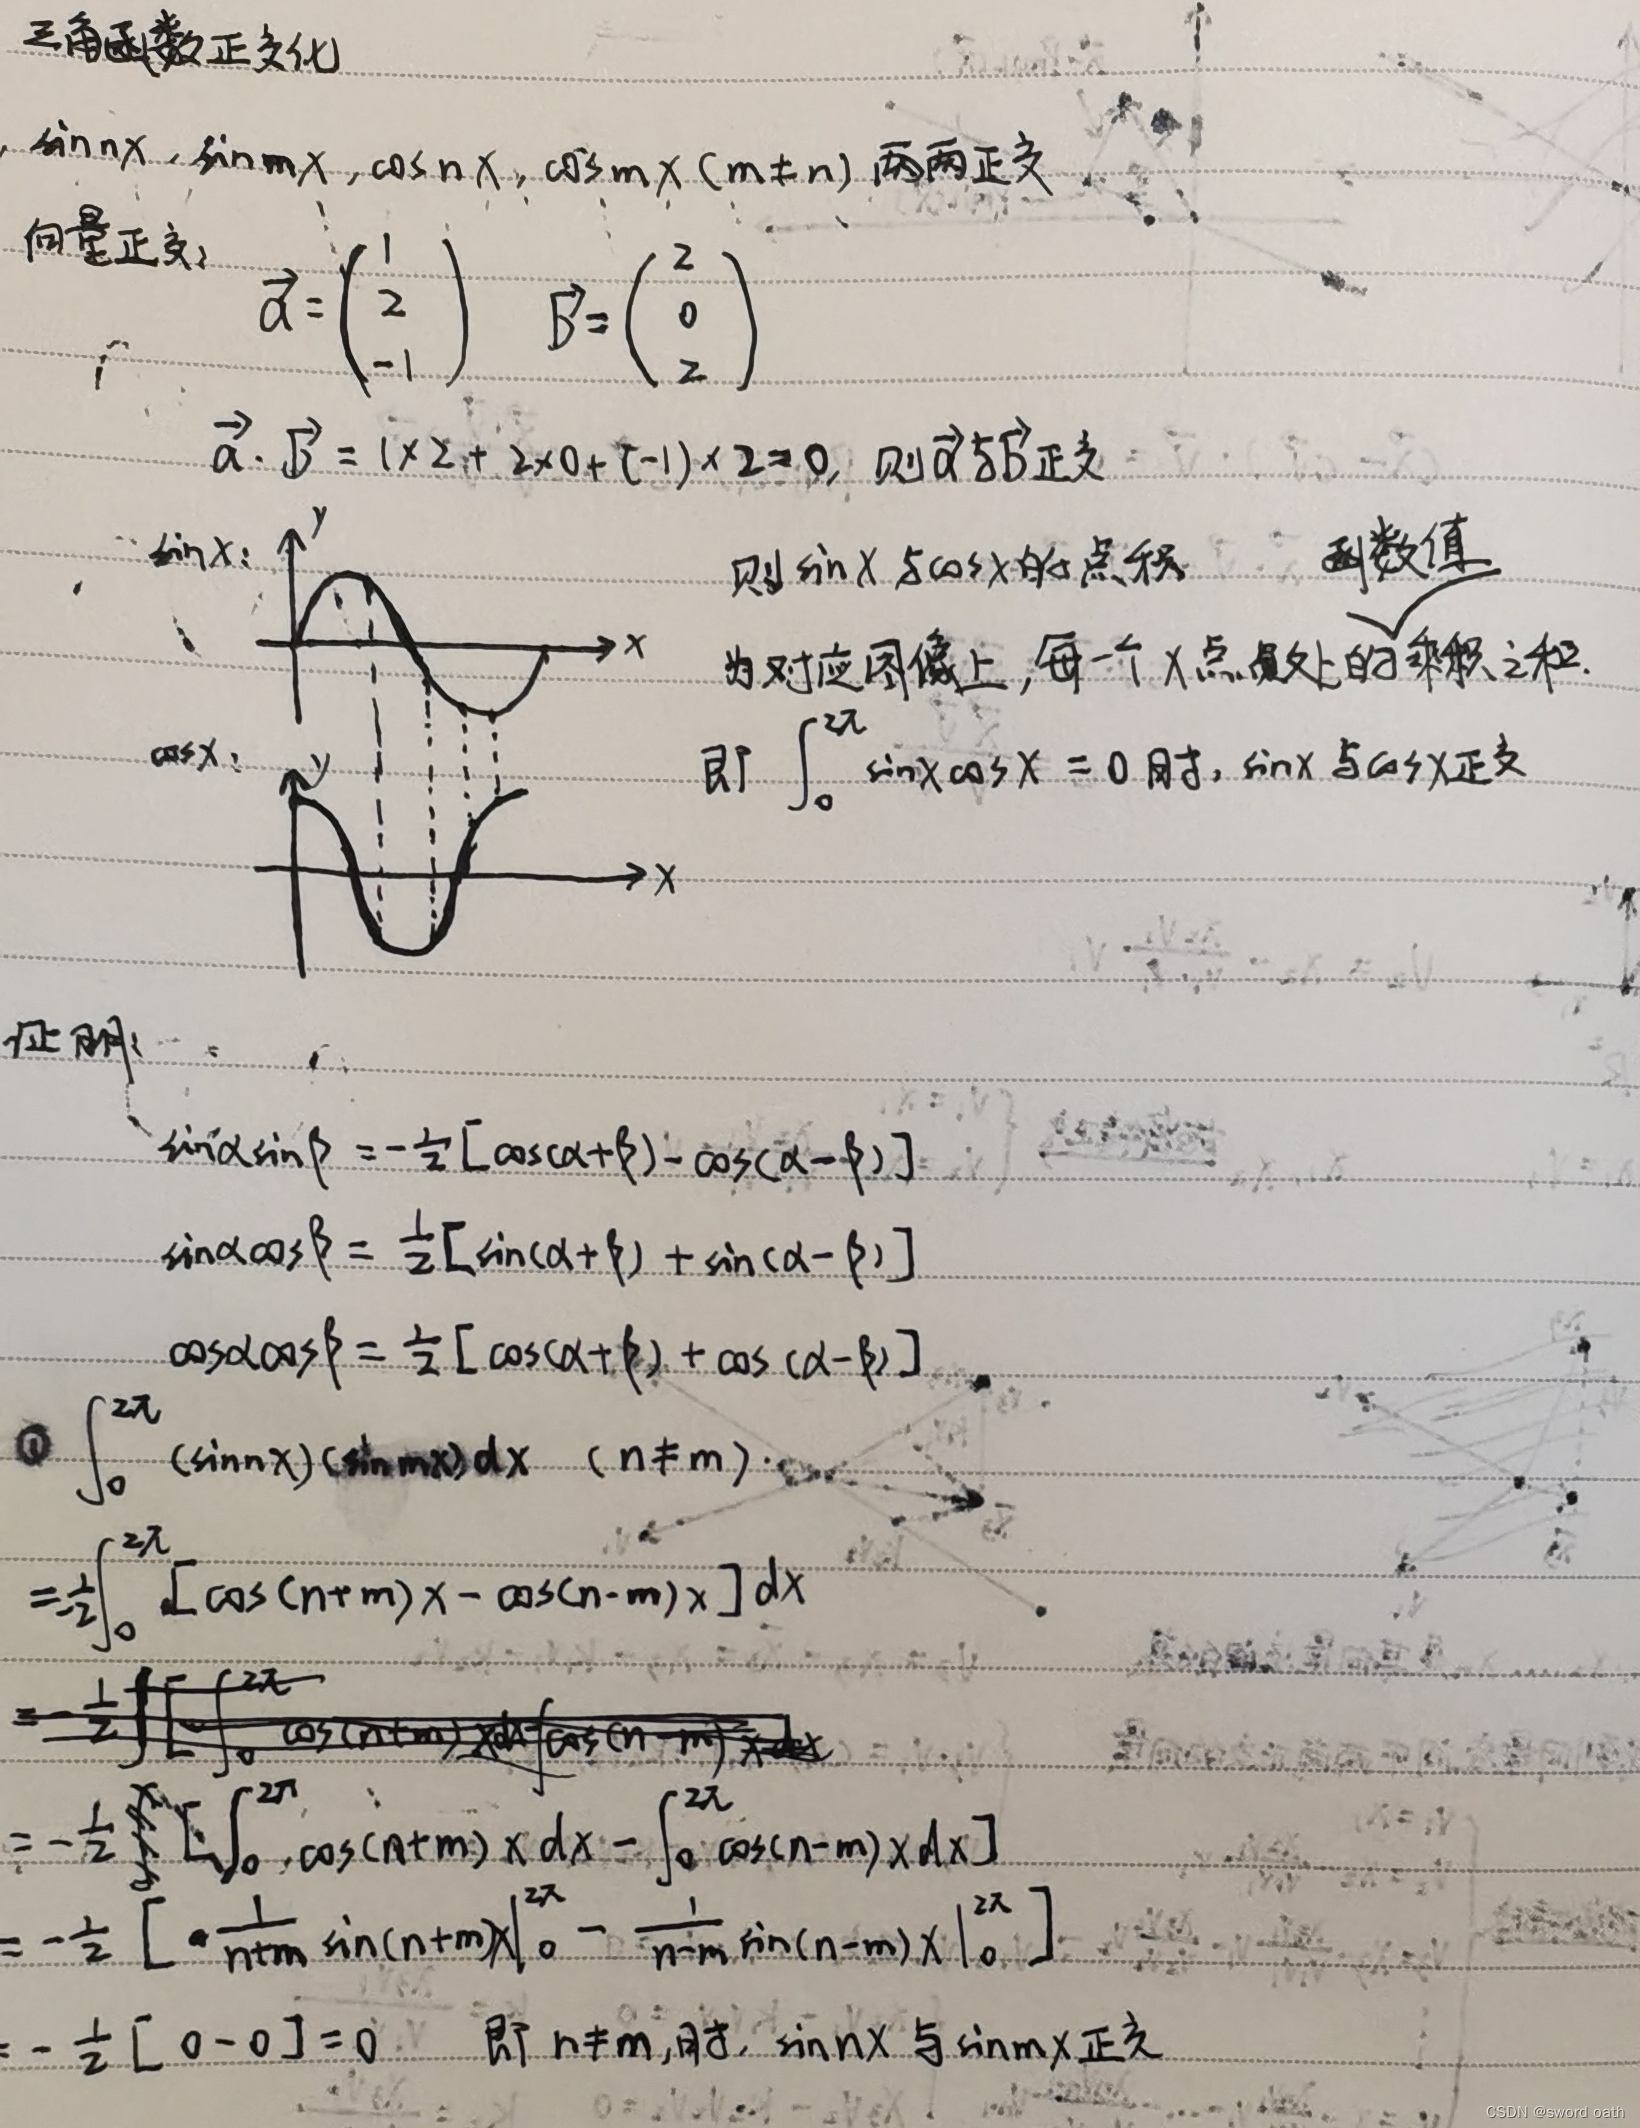 三角函数正交化
sinnx, sinmx, cosnx, cosmx (m≠n) 两两正交
向量正交:
a⃗ = (1 2 -1) b⃗ = (2 0 2)
a⃗·b⃗ = 1×2 + 2×0 + (-1)×2 = 0, 则a⃗与b⃗正交
sinx: y x
则sinx与cosx的点积 函数值
为对应图像上,每一个x点处上的乘积之和.
cosx: y x
即 ∫₀^2π sinxcosx = 0 时, sinx与cosx正交
证明:
sinαsinβ = -1/2[cos(α+β) - cos(α-β)]
sinαcosβ = 1/2[sin(α+β) + sin(α-β)]
cosαcosβ = 1/2[cos(α+β) + cos(α-β)]
① ∫₀^2π (sinnx)(sinmx)dx (n≠m)
= -1/2 ∫₀^2π [cos(n+m)x - cos(n-m)x]dx
= -1/2 [∫₀^2π cos(n+m)x dx - ∫₀^2π cos(n-m)x dx]
= -1/2 [1/(n+m) sin(n+m)x|₀^2π - 1/(n-m) sin(n-m)x|₀^2π]
= -1/2 [0-0] = 0 即 n≠m,时, sinnx与sinmx正交
CSDN @sword oath